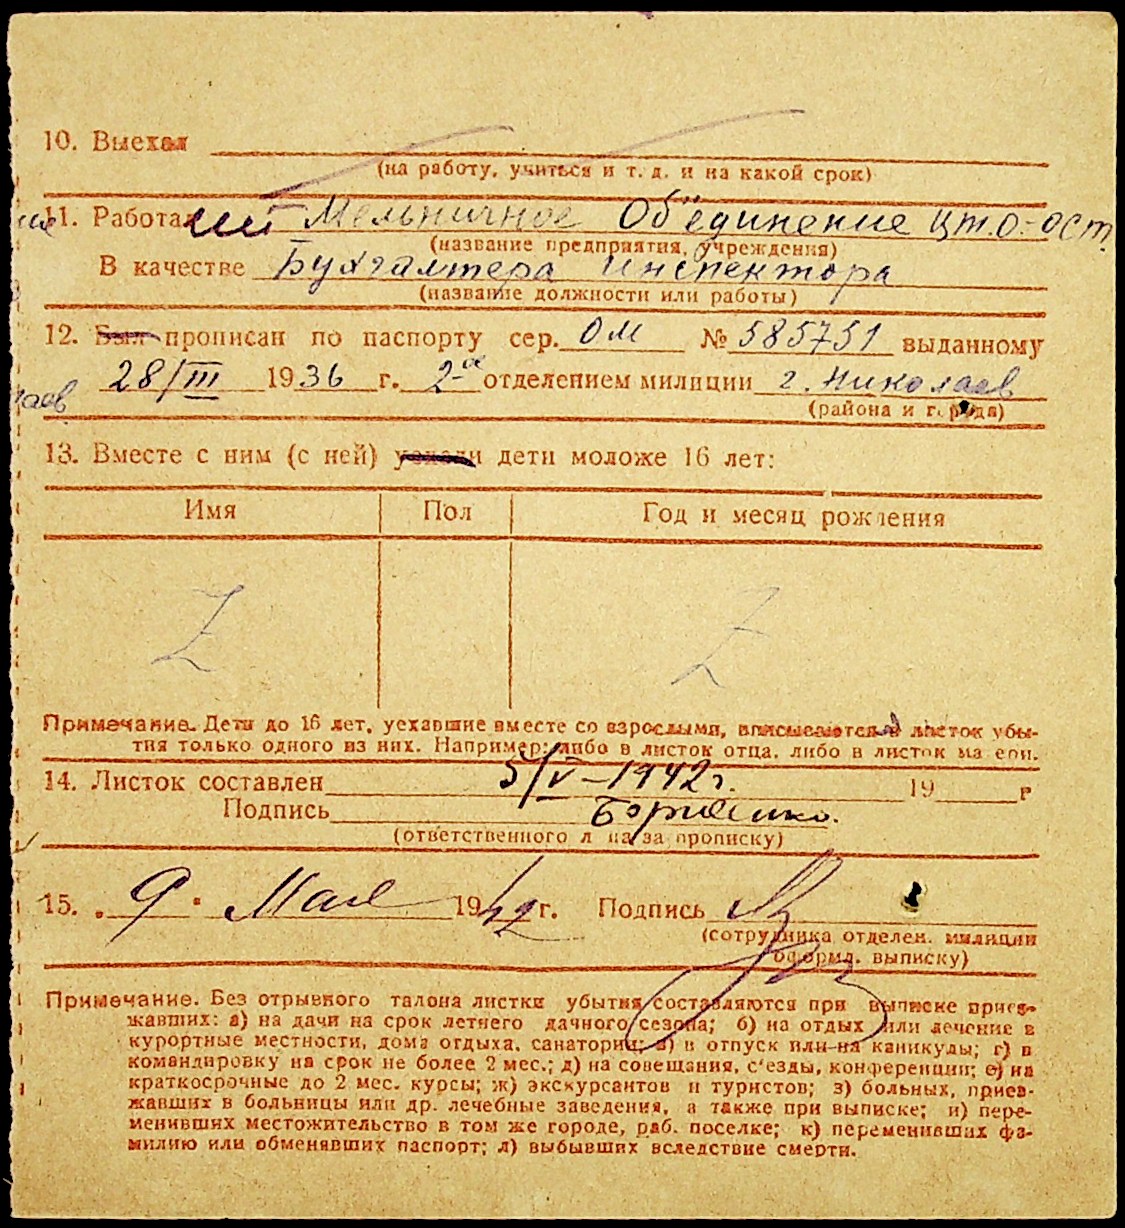 10. Выехал
(на работу, учиться и т. д. и на какой срок)
11. Работал Мельничное Об'единение
(название предприятия, учреждения)
В качестве Бухгалтера инспектора
(название должности или работы)
12. Был прописан по паспорту сер. ОМ № 585751 выданному
28/III 1936 г. 2-й отделением милиции г. Николаев
(района и города)
13. Вместе с ним (с ней) дети моложе 16 лет:
Имя Пол Год и месяц рождения
Z Z
Примечание. Дети до 16 лет, уехавшие вместе со взрослыми, вписываются в листок убы-
тия только одного из них. Например: либо в листок отца, либо в листок матери.
14. Листок составлен 5/V-1942г. 19 г
Подпись
(ответственного лица за прописку)
15. 9 Мая 1942 г. Подпись
(сотрудника отделен. милиции
оформл. выписку)
Примечание. Без отрывного талона листки убытия составляются при выписке приез-
жавших: а) на дачи на срок летнего дачного сезона; б) на отдых или лечение в
курортные местности, дома отдыха, санатории; в) в отпуск или на каникулы; г) в
командировку на срок не более 2 мес.; д) на совещания, с'езды, конференции; е) на
краткосрочные до 2 мес. курсы; ж) экскурсантов и туристов; з) больных, приез-
жавших в больницы или др. лечебные заведения, а также при выписке; и) пере-
менивших местожительство в том же городе, раб. поселке; к) переменивших фа-
милию или обменявших паспорт; л) выбывших вследствие смерти.